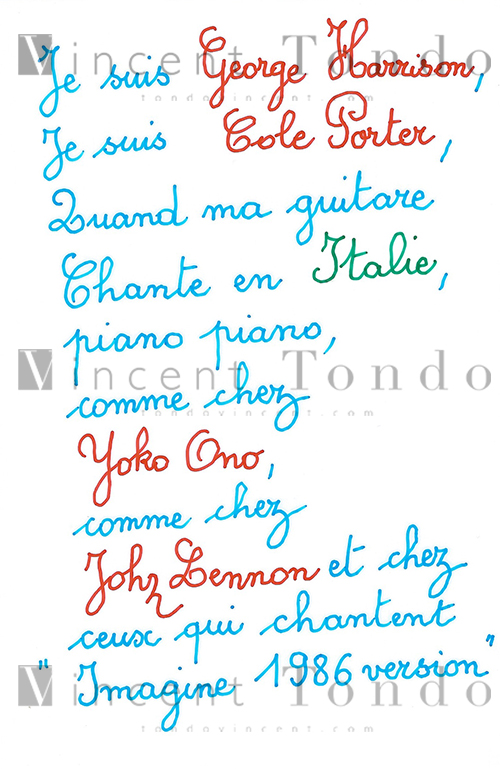 Vincent Tondo
tondovincent.com
Je suis George Harrison,
Je suis Cole Porter,
Quand ma guitare
Chante en Italie,
piano piano,
Vincent Tondo
comme chez
tondovincent.com
Yoko Ono,
comme chez
John Lennon et chez
ceux qui chantent
"Imagine 1986 version"
Vincent Tondo
tondovincent.com